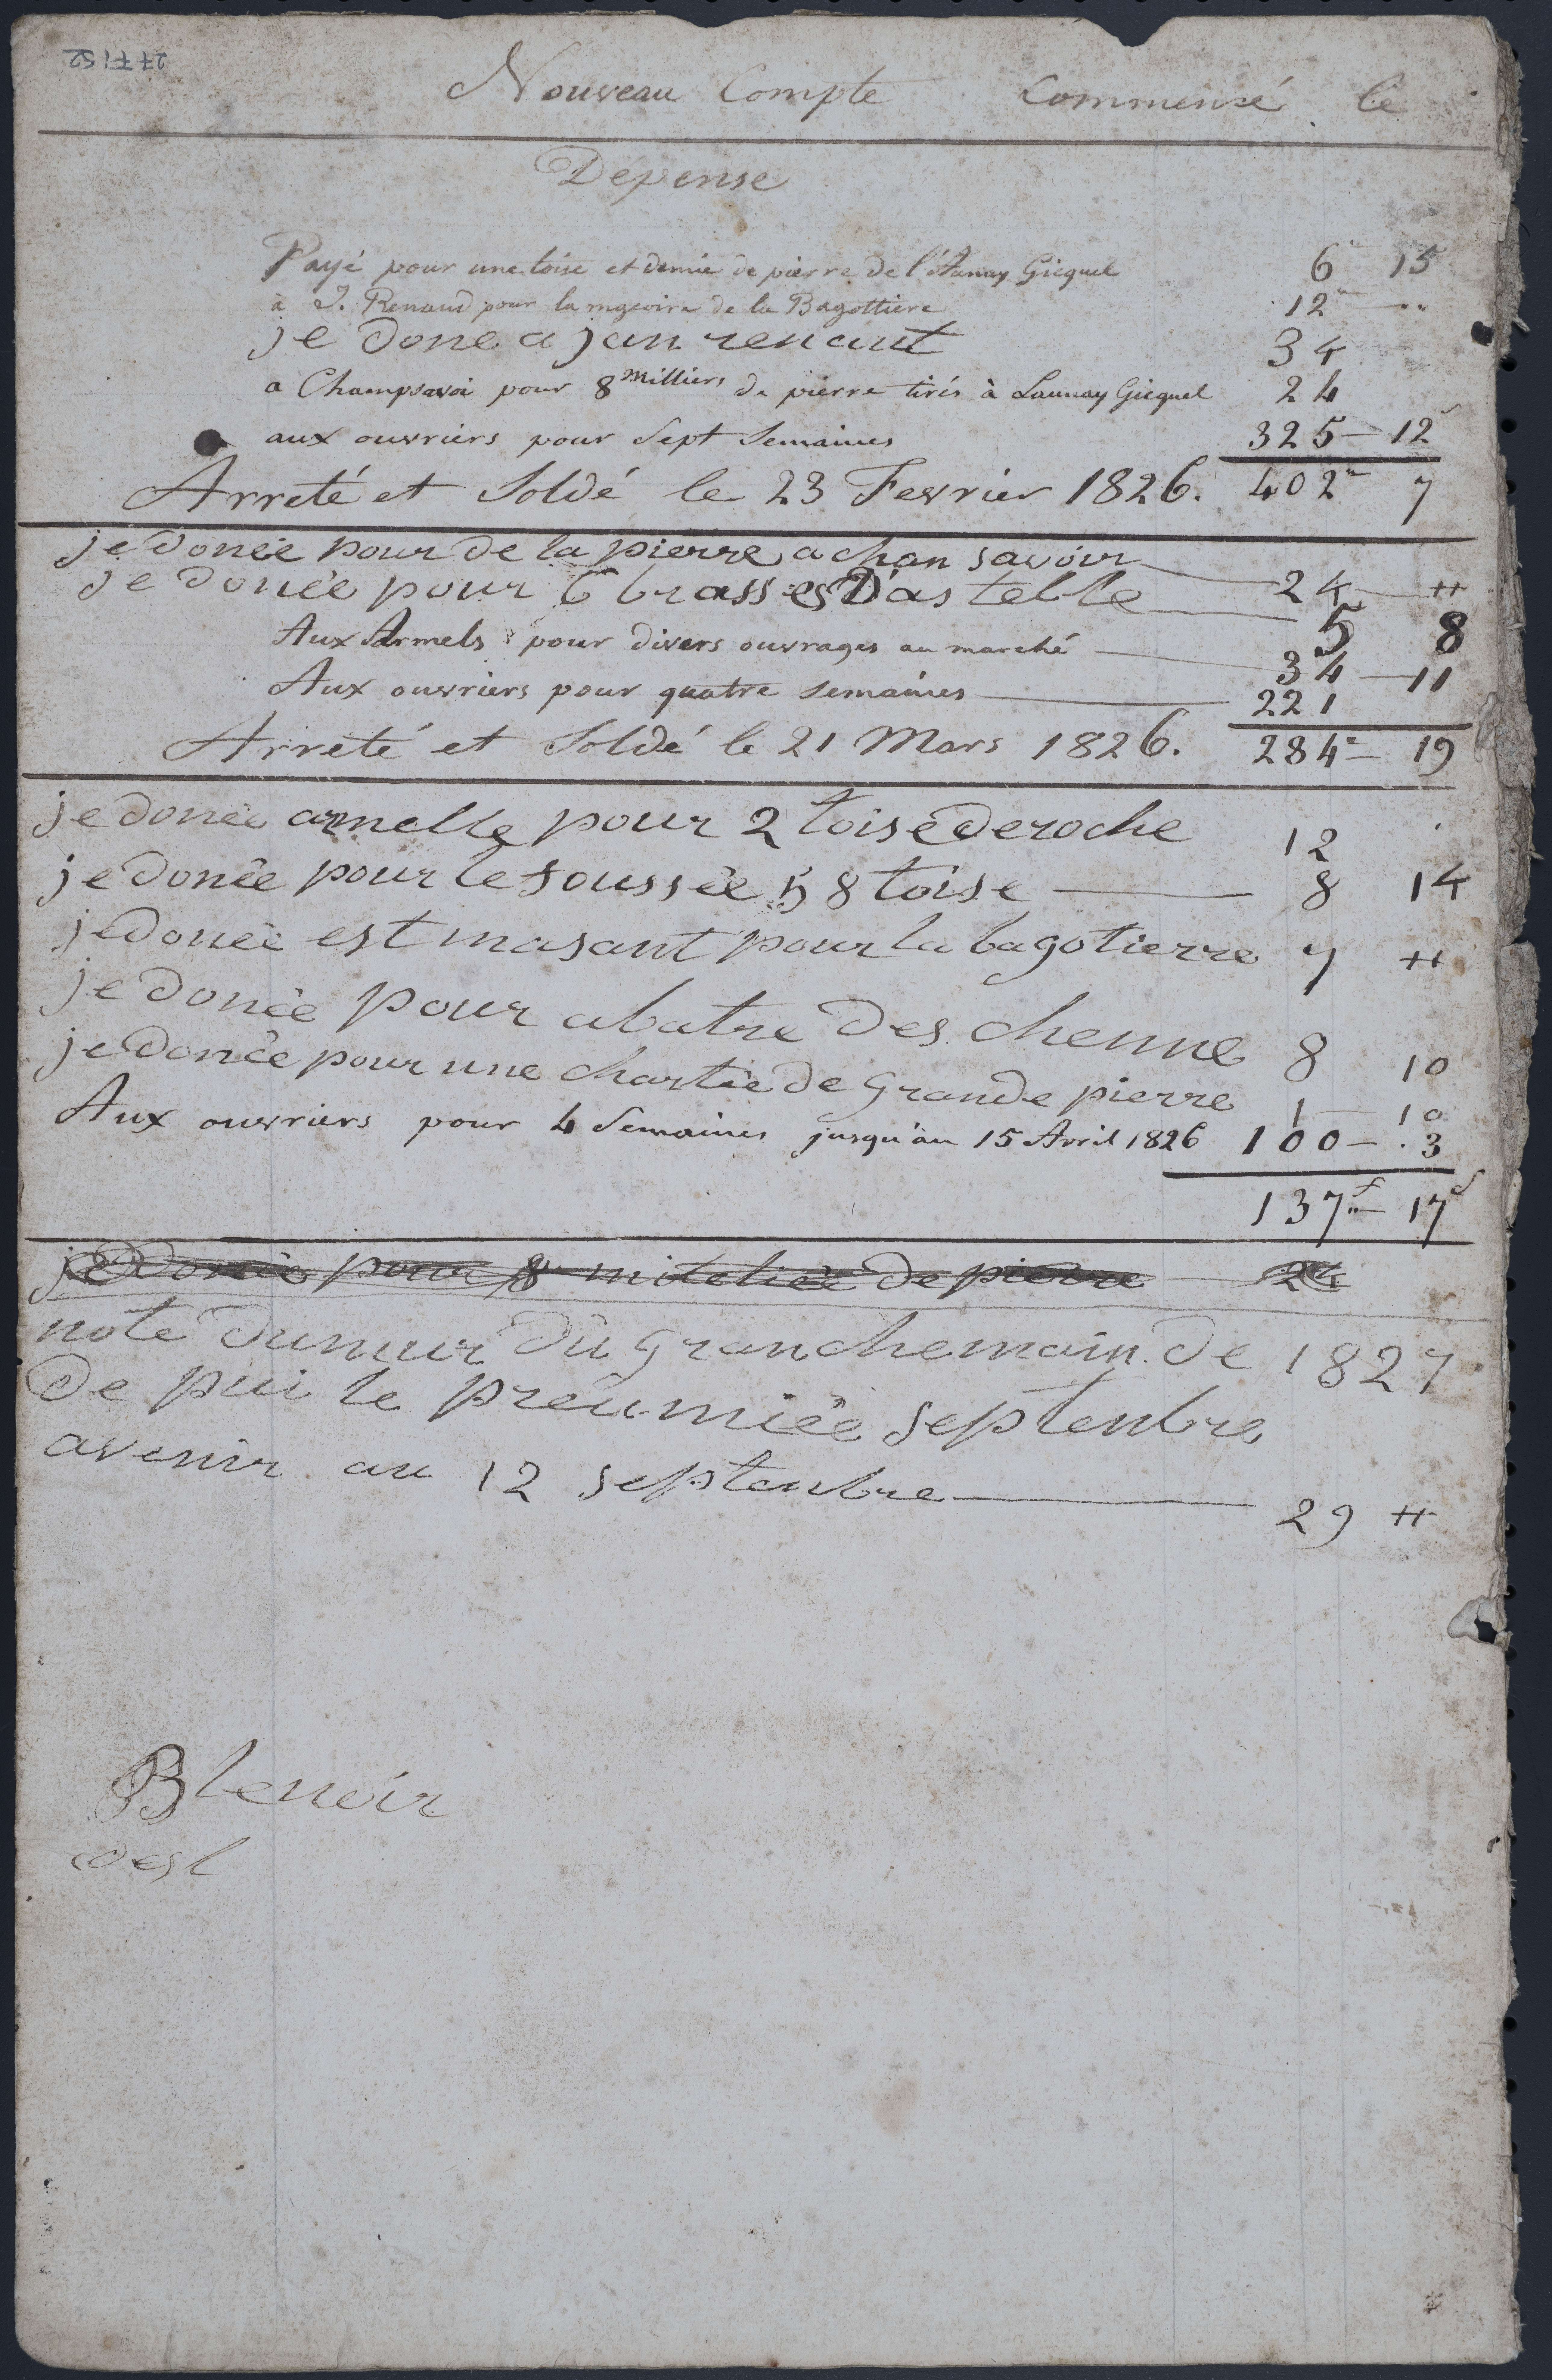 277J52
Nouveau Compte Commensé le
Dépense
Payé pour une toise et demie de pierre de l'Aunay Gicquel 6 " 15
à J. Renaud pour la mgeoire de la Bagottiere 12 " - "
je done a jan renaut 34
a Champsavoi pour 8 Milliers de pierre tirés à Launay Gicquel 24
aux ouvriers pour Sept Semaines 325 - 12 s
Arreté et Soldé le 23 Fevrier 1826. 402 " 7
je donée pour de la pierre a chan savoir 24 - "
je donée pour 6 brasses D'astelle 5 8
Aux Armels pour divers ouvrages au marché 34 - 11
Aux ouvriers pour quatre semaines 221
Arreté et Soldé le 21 Mars 1826. 284 " - 19
je donée armelle pour 2 toise de roche 12
je donée pour le foussée 58 toise 8 14
je donée est masant pour la bagotierre 7 "
je donée pour abatre des chenne 8 10
je donée pour une chartée de grande pierre 1 - 10
Aux ouvriers pour 4 Semaines jusqu'au 15 Avril 1826 100 - . 3
137 f " - 17 s
je donée pour 8 de pierre 24
note du mur du gran chemain de 1827
de pui le preumiée septenbre
avenir au 12 septenbre 29 "
B lenoir